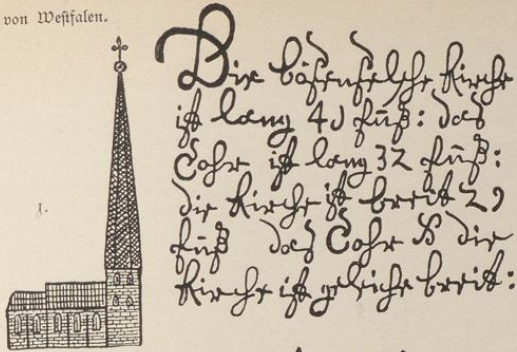 von Westfalen.
Die bösenselsche Kirche
ist lang 40 fuß: das
Cohr ist lang 32 fuß:
die Kirche ist breit 29
fuß das Cohr die
Kirche ist geleiche breit:
1.